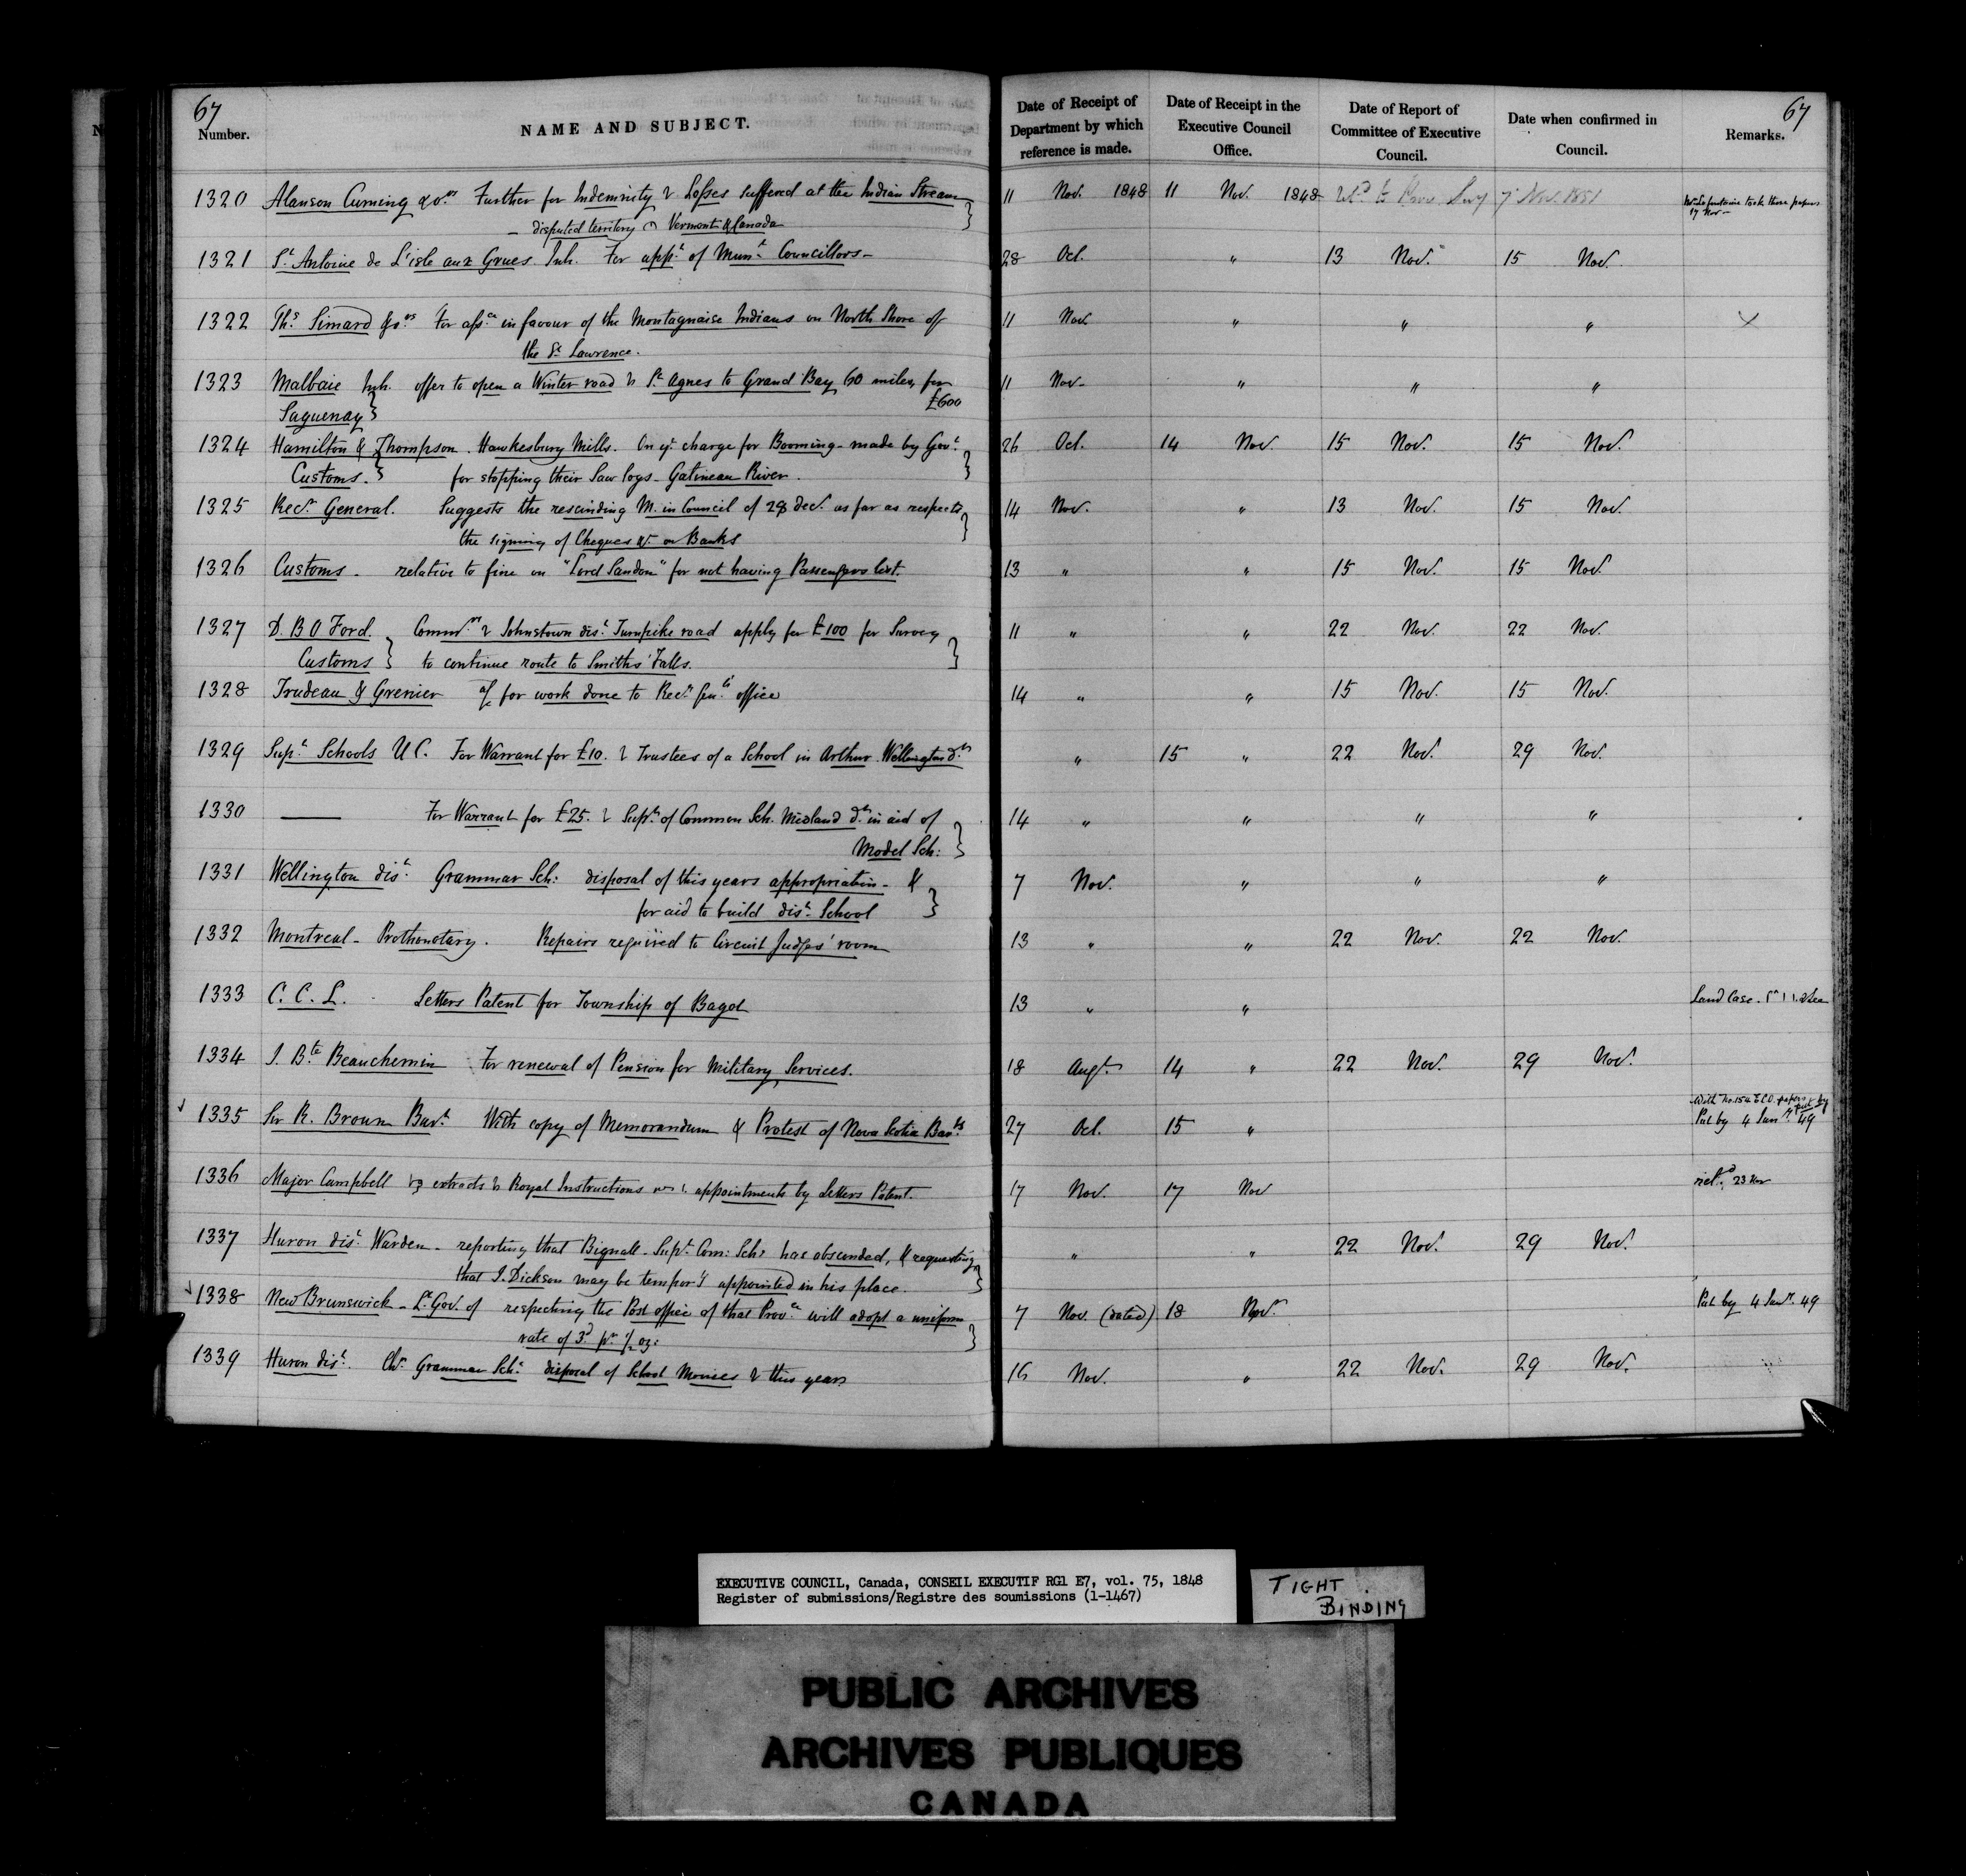 67 67
Number. NAME AND SUBJECT. Date of Receipt of Department by which reference is made. Date of Receipt in the Executive Council Office. Date of Report of Committee of Executive Council. Date when confirmed in Council. Remarks.
1320 Alanson Cuming & ors Further for Indemnity Losses suffered at the Indian Stream 11 Nov. 1848 11 Nov. 1848 7 Nov. 1851 took these papers
disputed territory Vermont & Canada 17 Nov
1321 St Antoine de L'isle aux Grues Inh. For appt of Munl Councillors 28 Oct. " 13 Nov. 15 Nov.
1322 Ths Simard & ors For assce in favour of the Montagnaise Indians on North Shore of 11 Nov. " " " X
the St Lawrence.
1323 Malbaie Inh. offer to open a Winter road St Agnes to Grand Bay 60 miles, for 11 Nov. " " "
Saguenay £600
1324 Hamilton & Thompson. Hawkesbury Mills. On ye charge for Booming made by Govt 26 Oct. 14 Nov. 15 Nov. 15 Nov.
Customs. for stopping their Saw logs Gatineau River.
1325 Recr General. Suggests the rescinding M. in Council of 28 Dec. as far as respects 14 Nov. " 13 Nov. 15 Nov.
the signing of Cheques &c on Banks
1326 Customs relative to fine on "Lord Sandon" for not having Passengers list. 13 " " 15 Nov. 15 Nov.
1327 D. B O Ford. Johnstown dist Turnpike road apply for £100 for Survey 11 " " 22 Nov. 22 Nov.
Customs to continue route to Smiths' Falls.
1328 Trudeau & Grenier a/c for work done to Recr Genls office 14 " " 15 Nov. 15 Nov.
1329 Supt Schools U C. For Warrant for £10. Trustees of a School in Arthur Wellington dt " 15 " 22 Nov. 29 Nov.
1330 —— For Warrant for £25. Supt of Common Sch. Midland dt in aid of 14 " " " "
Model Sch:
1331 Wellington dist Grammar Sch: disposal of this years appropriation & 7 Nov. " " "
for aid to build dist School
1332 Montreal Prothonotary. Repairs required to Circuit Judges' room 13 " " 22 Nov. 22 Nov.
1333 C. C. L. Letters Patent for Township of Bagot 13 " " Land Case.
1334 J. Bte Beauchemin For renewal of Pension for Military Services. 18 Augt 14 " 22 Nov. 29 Nov.
1335 Sir R. Broun Bart With copy of Memorandum & Protest of Nova Scotia Barts 27 Oct. 15 " With No. 154 E.C.O. papers put by
Put by 4 Jany 49
1336 Major Campbell extracts Royal Instructions appointments by Letters Patent. 17 Nov. 17 Nov retd 23 Nov
1337 Huron dist Warden reporting that Bignall Supt Com: Sch: has absconded, & requesting " " 22 Nov. 29 Nov.
that J. Dickson may be tempory appointed in his place.
1338 New Brunswick Lt Gov. of respecting the Post office of that Provce will adopt a uniform 7 Nov. (dated) 18 Nov. Put by 4 Jany 49
rate of 3d pr ½ oz:
1339 Huron dist. Chn Grammar Sch: disposal of School Monies this year 16 Nov. " 22 Nov. 29 Nov.
EXECUTIVE COUNCIL, Canada, CONSEIL EXECUTIF RG1 E7, vol. 75, 1848
Register of submissions/Registre des soumissions (1-1467)
TIGHT
BINDING
PUBLIC ARCHIVES
ARCHIVES PUBLIQUES
CANADA